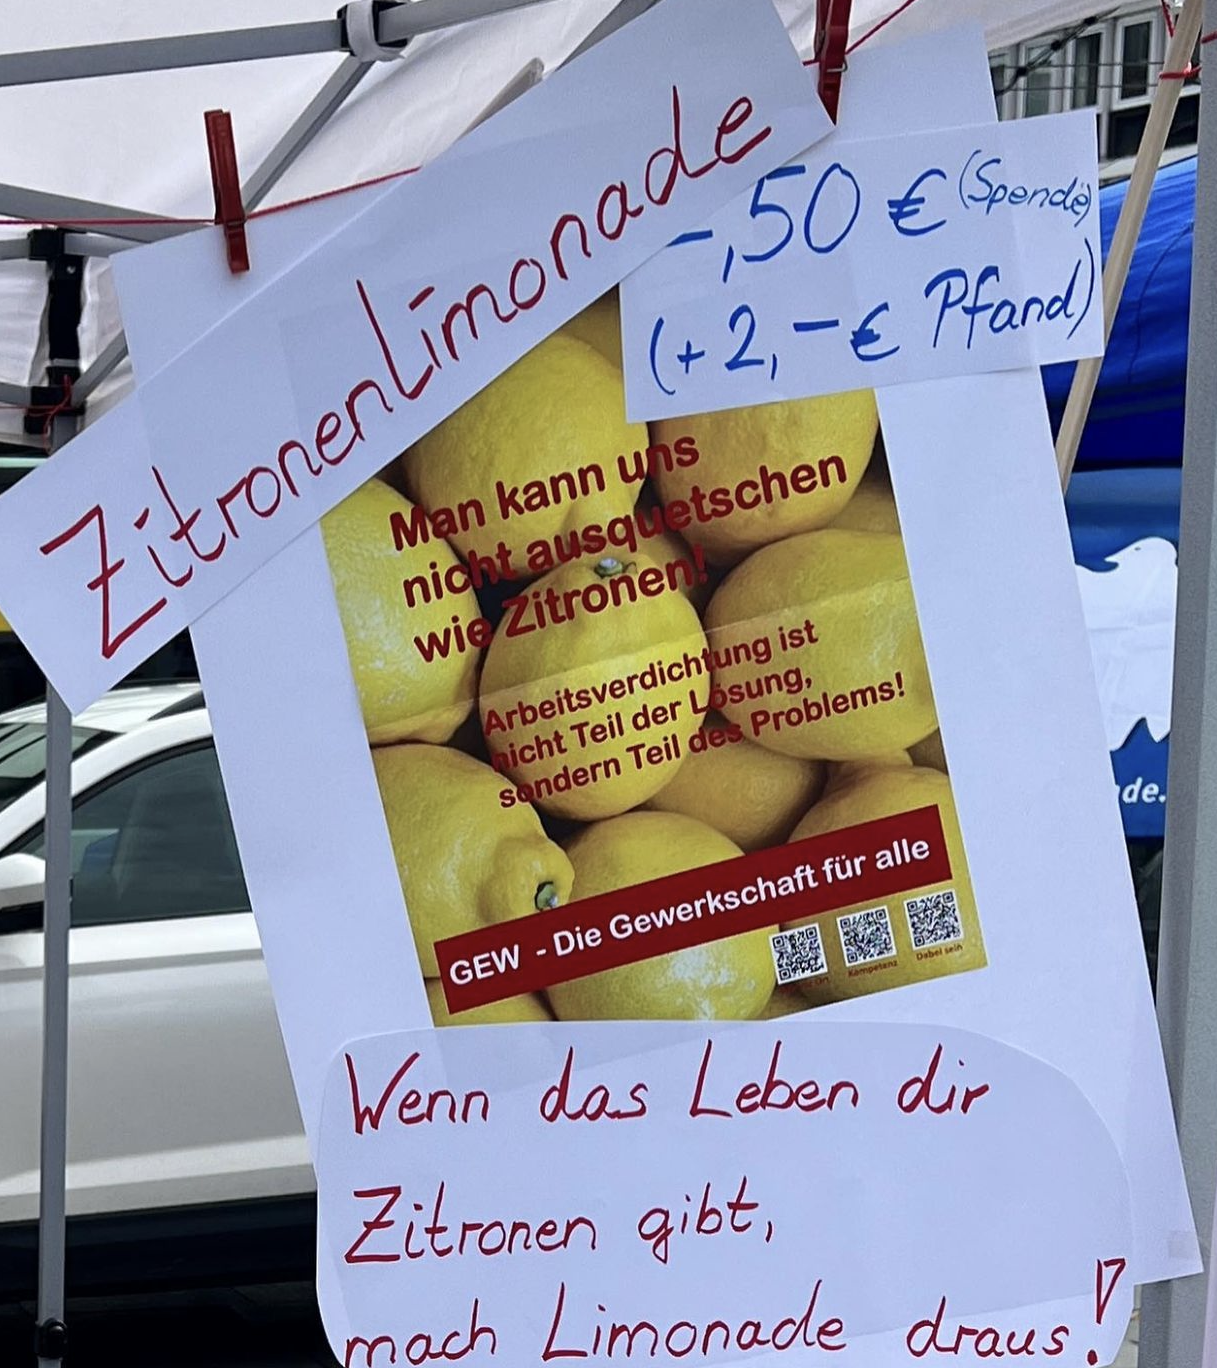 ZitronenLimonade
-,50 € (Spende)
(+ 2,- € Pfand)
Man kann uns
nicht ausquetschen
wie Zitronen!
Arbeitsverdichtung ist
nicht Teil der Lösung,
sondern Teil des Problems!
GEW - Die Gewerkschaft für alle
Kompetenz
Dabei sein
Wenn das Leben dir
Zitronen gibt,
mach Limonade draus!
de.